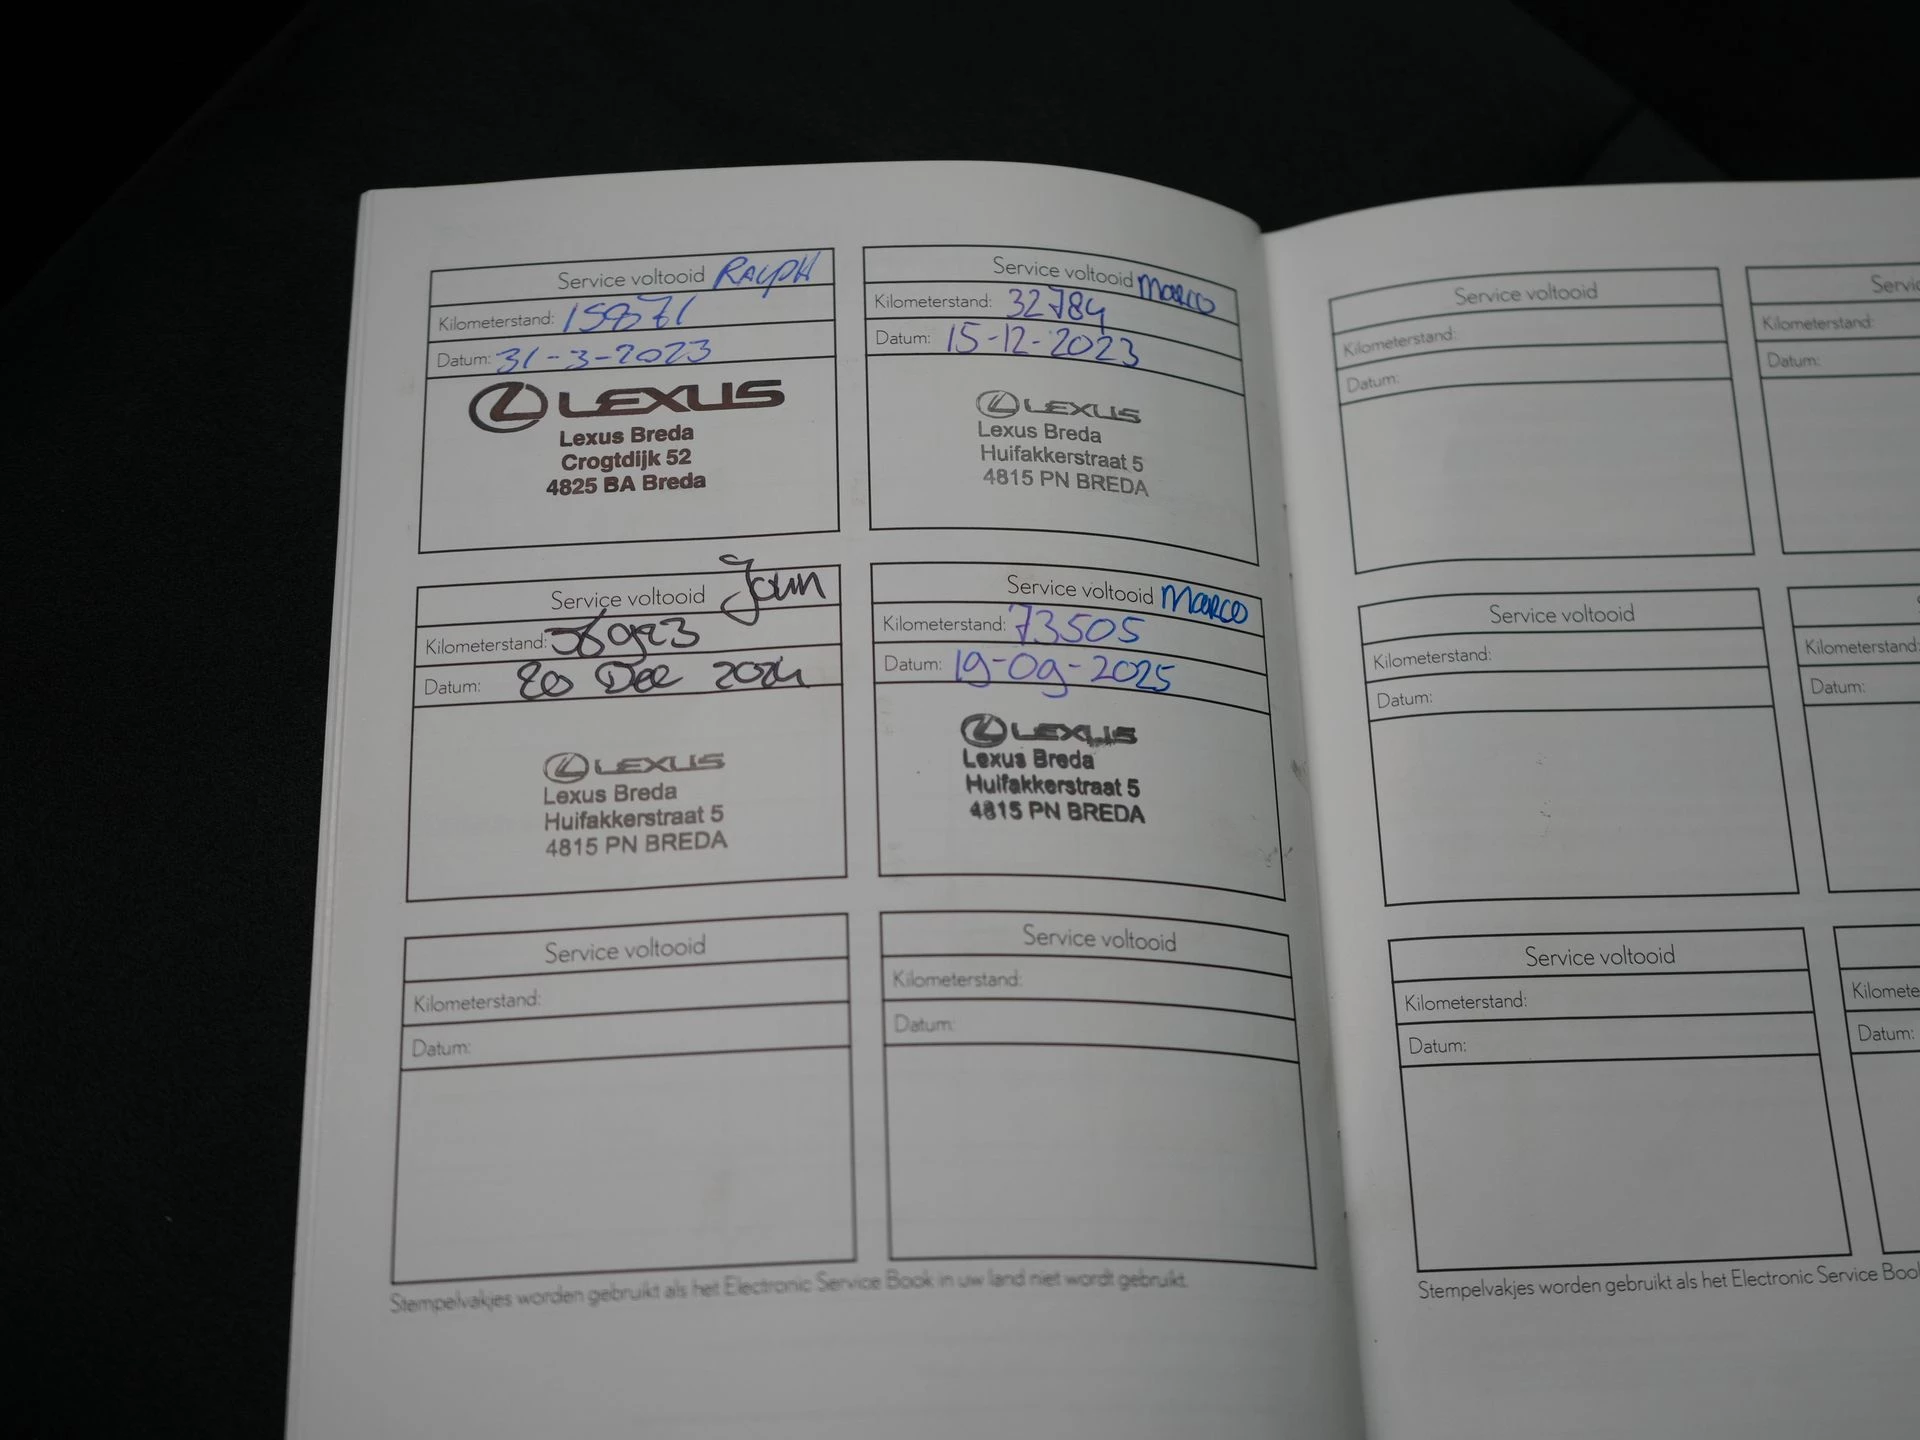 Service voltooid RALPH
Kilometerstand: 15871
Datum: 31-3-2023
LEXUS
Lexus Breda
Crogtdijk 52
4825 BA Breda
Service voltooid Marco
Kilometerstand: 32784
Datum: 15-12-2023
LEXUS
Lexus Breda
Huifakkerstraat 5
4815 PN BREDA
Service voltooid
Kilometerstand:
Datum: 20 Dec 2024
LEXUS
Lexus Breda
Huifakkerstraat 5
4815 PN BREDA
Service voltooid Marco
Kilometerstand: 73505
Datum: 19-09-2025
LEXUS
Lexus Breda
Huifakkerstraat 5
4815 PN BREDA
Service voltooid
Kilometerstand:
Datum:
Service voltooid
Kilometerstand:
Datum:
Stempelvakjes worden gebruikt als het Electronic Service Book in uw land niet wordt gebruikt.
Service voltooid
Kilometerstand:
Datum:
Kilometerstand:
Datum:
Service voltooid
Kilometerstand:
Datum:
Kilometerstand:
Datum:
Service voltooid
Kilometerstand:
Datum:
Datum:
Stempelvakjes worden gebruikt als het Electronic Service